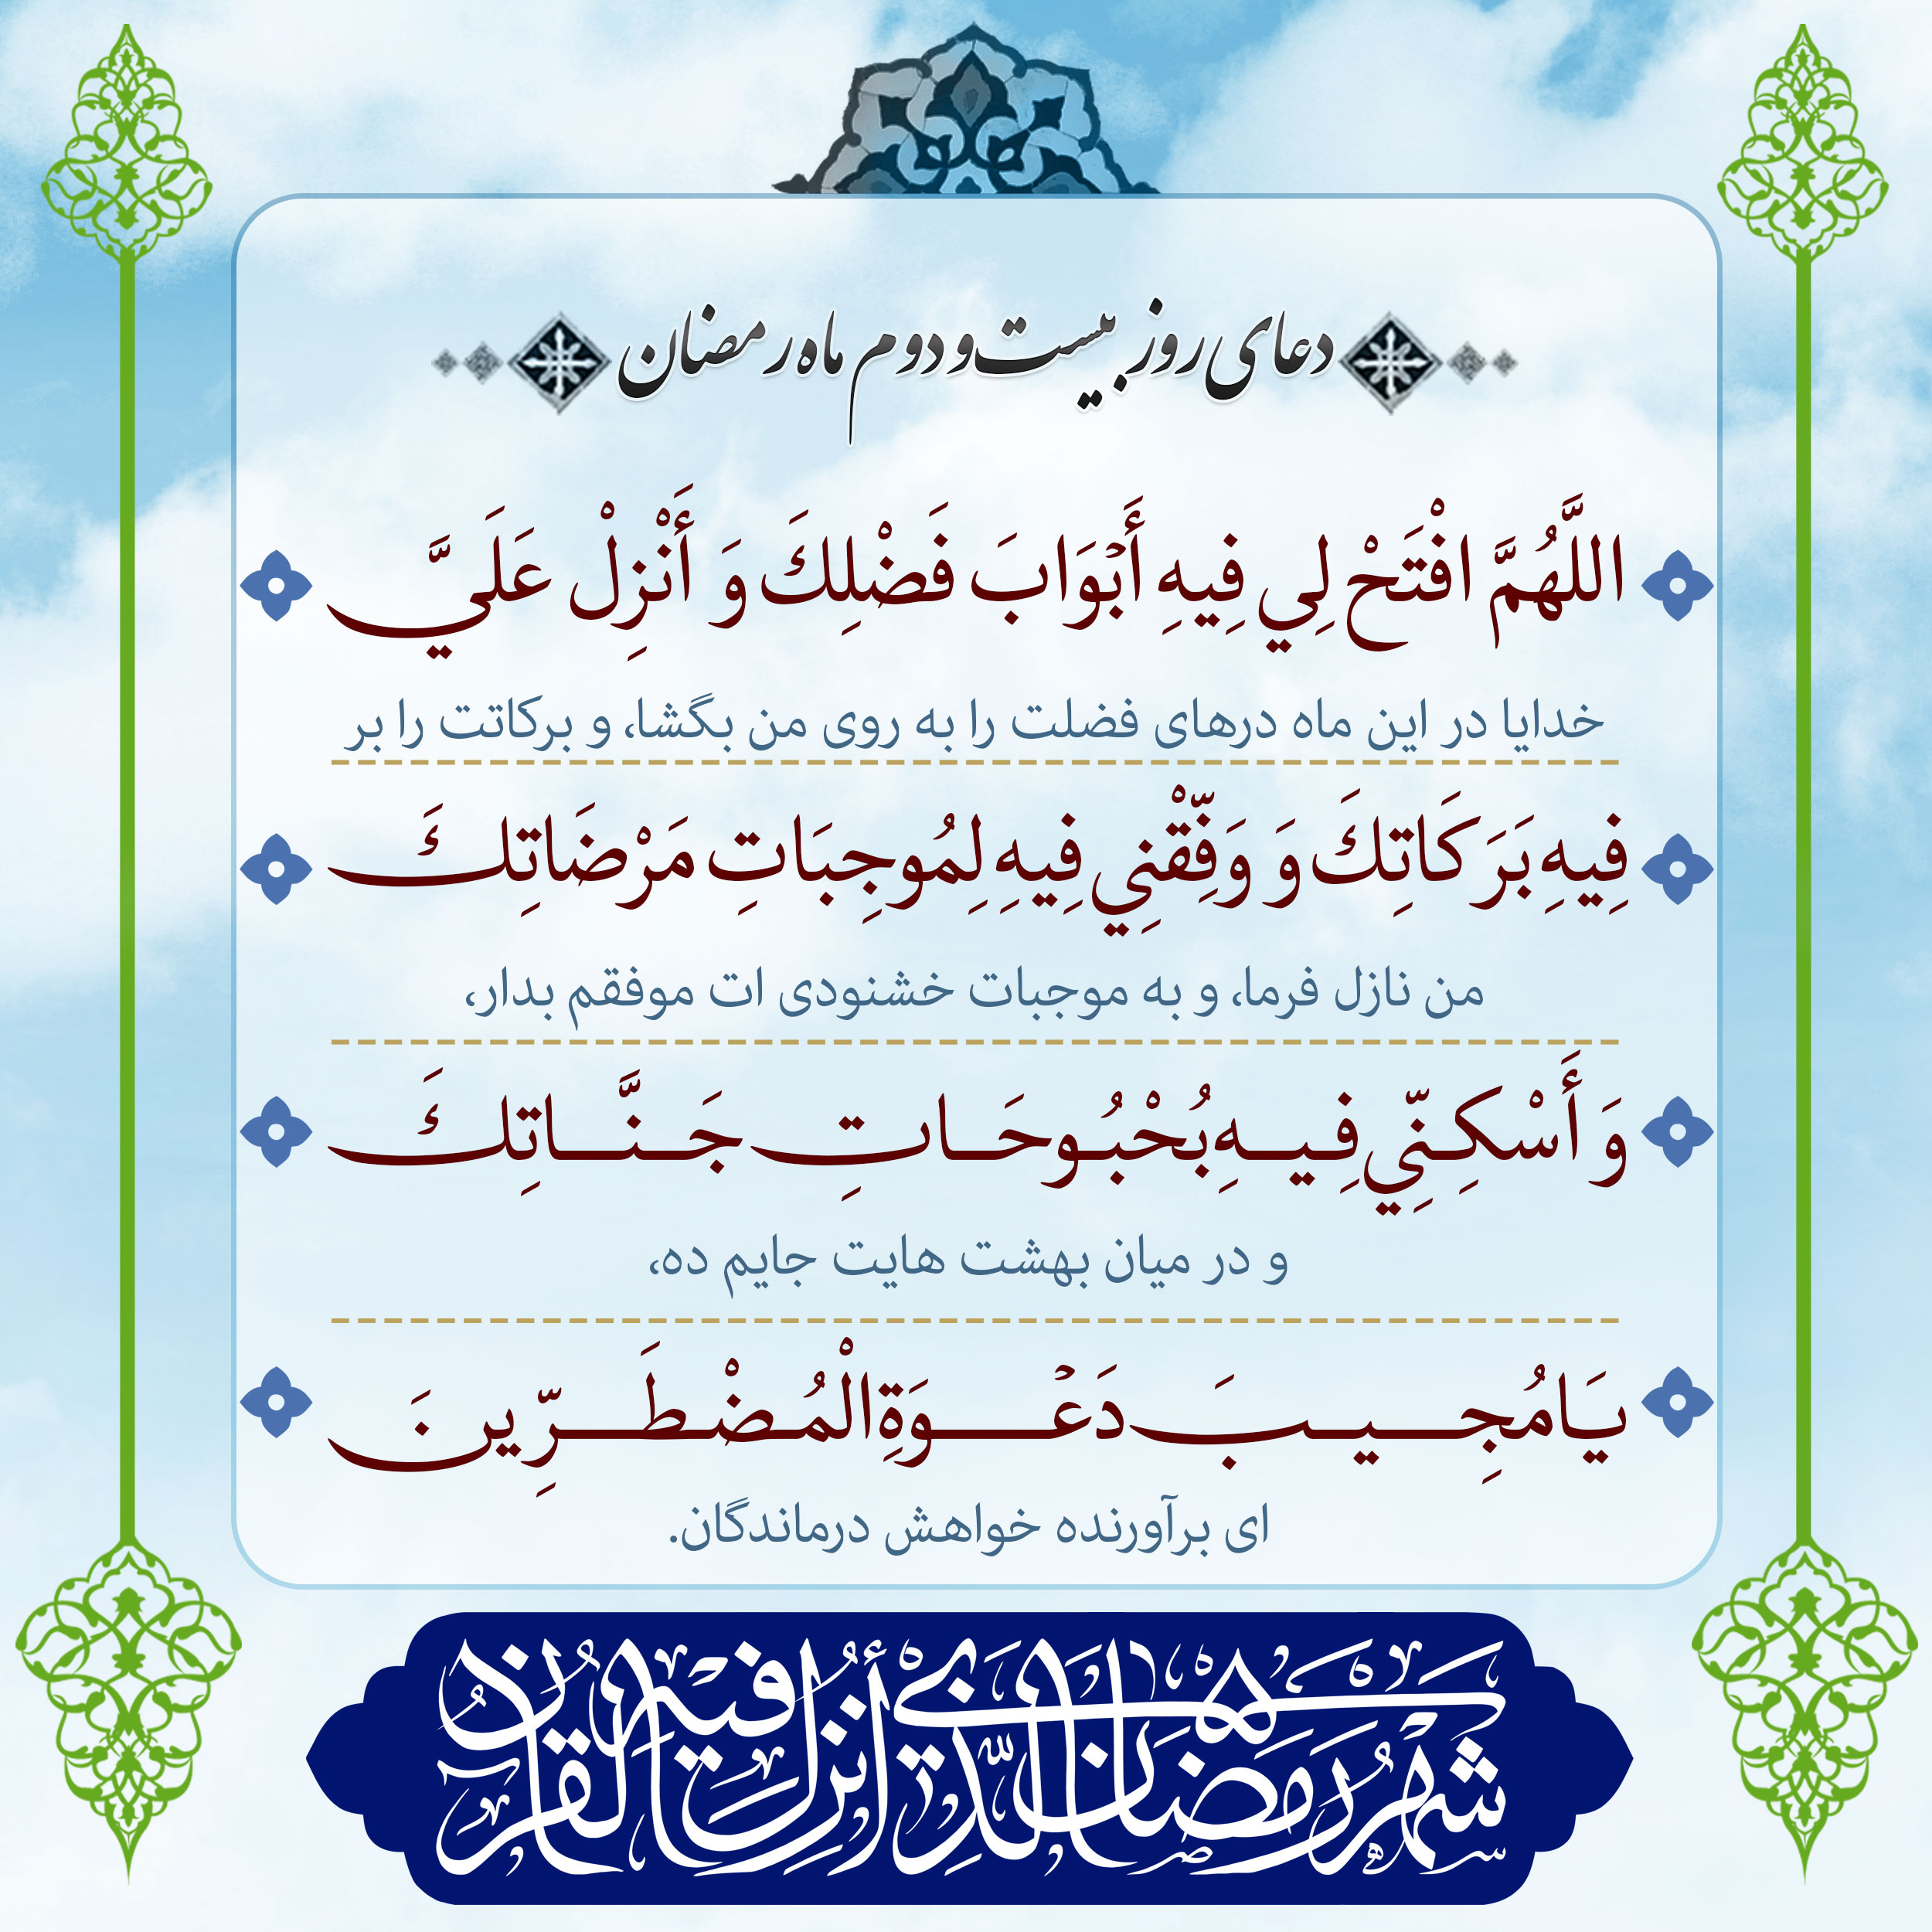 دعای روز بیست و دوم ماه رمضان
اللَّهُمَّ افْتَحْ لِي فِيهِ أَبْوَابَ فَضْلِكَ وَ أَنْزِلْ عَلَيَّ
خدایا در این ماه درهای فضلت را به روی من بگشا، و برکاتت را بر
فِيهِ بَرَكَاتِكَ وَ وَفِّقْنِي فِيهِ لِمُوجِبَاتِ مَرْضَاتِكَ
من نازل فرما، و به موجبات خشنودی ات موفقم بدار،
وَ أَسْكِنِّي فِيهِ بُحْبُوحَاتِ جَنَّاتِكَ
و در میان بهشت هایت جایم ده،
يَا مُجِيبَ دَعْوَةِ الْمُضْطَرِّينَ
ای برآورنده خواهش درماندگان.
شهر رمضان الذي أنزل فيه القرآن